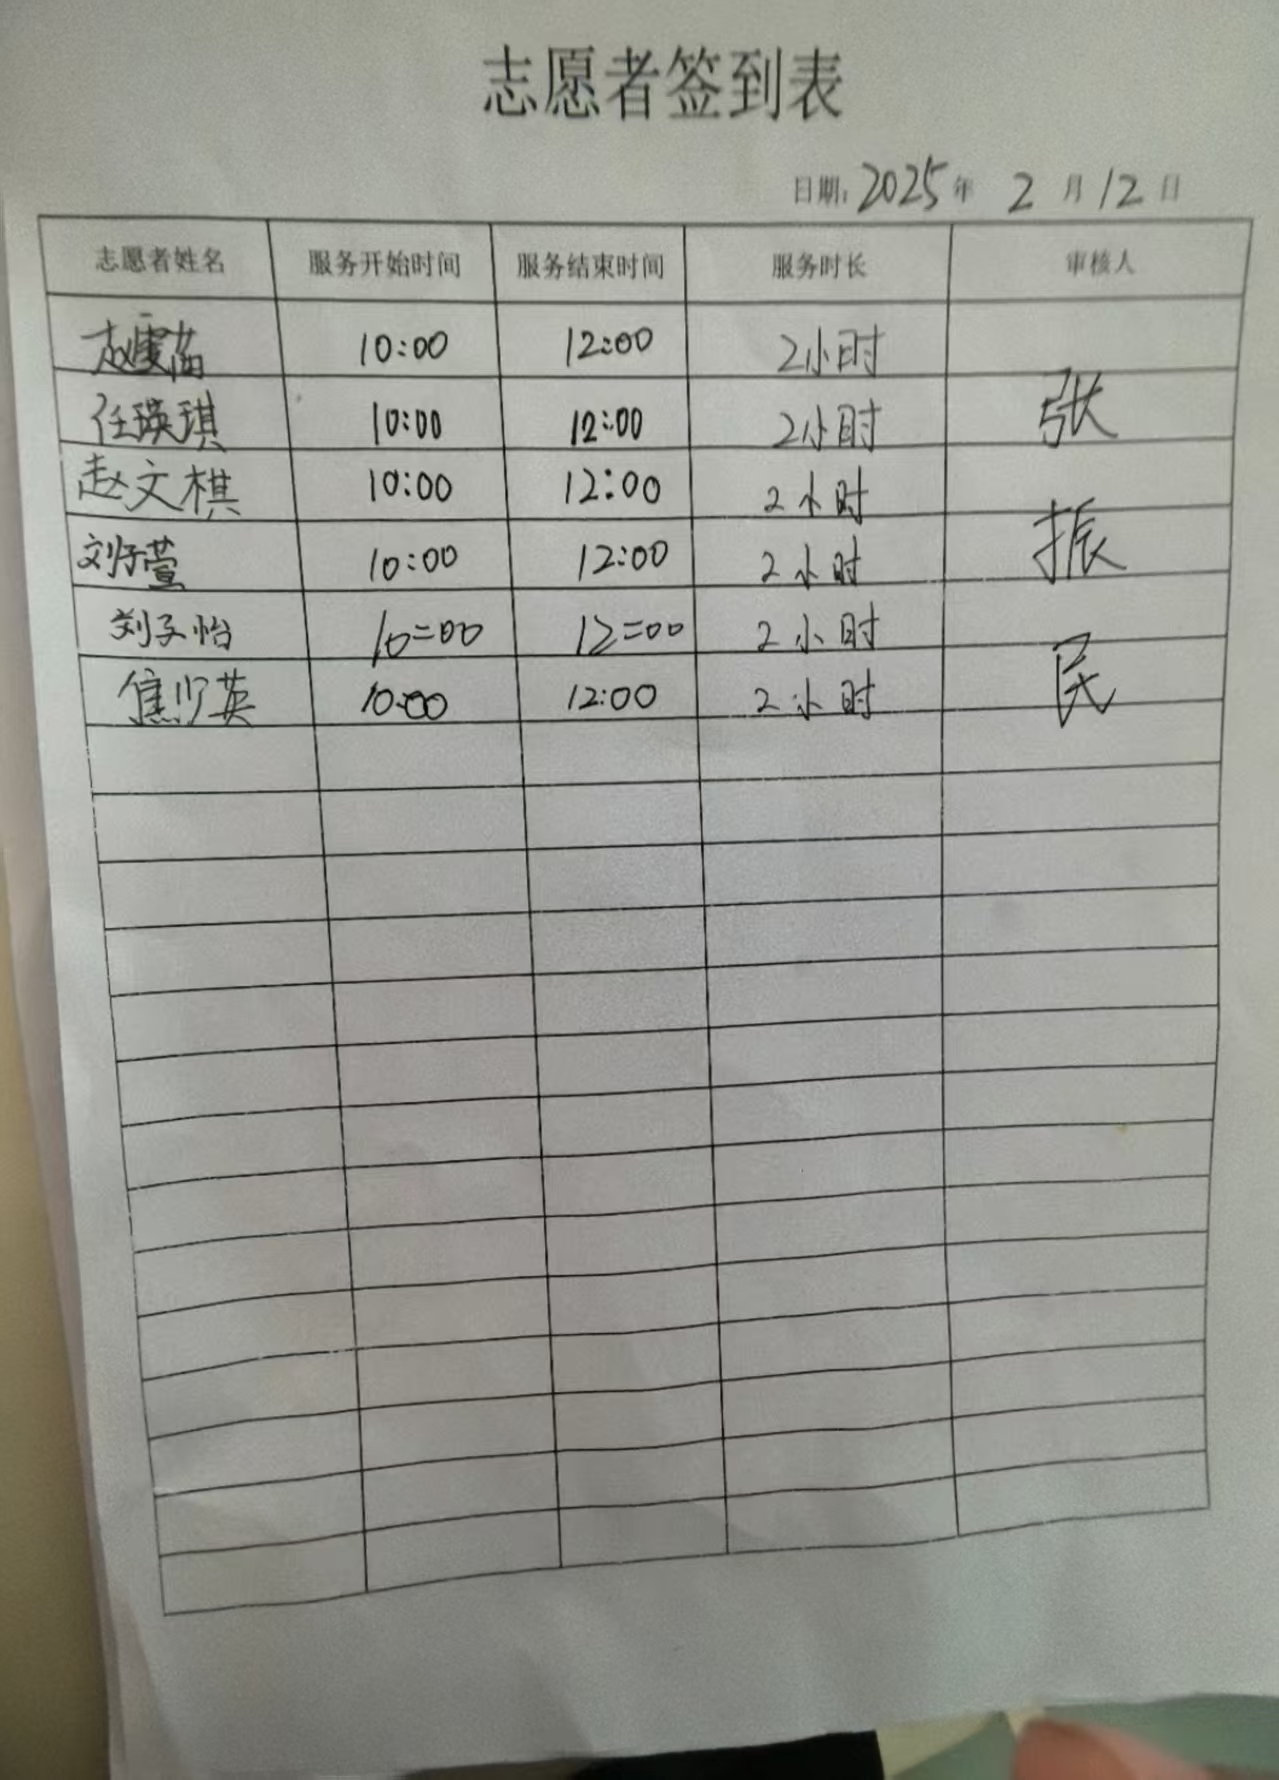 志愿者签到表
日期: 2025 年 2 月 12 日
志愿者姓名 服务开始时间 服务结束时间 服务时长 审核人
赵 10:00 12:00 2小时
任瑛琪 10:00 12:00 2小时 张
赵文棋 10:00 12:00 2小时
刘子萱 10:00 12:00 2小时 振
刘子怡 10:00 12:00 2小时
焦少英 10:00 12:00 2小时 民